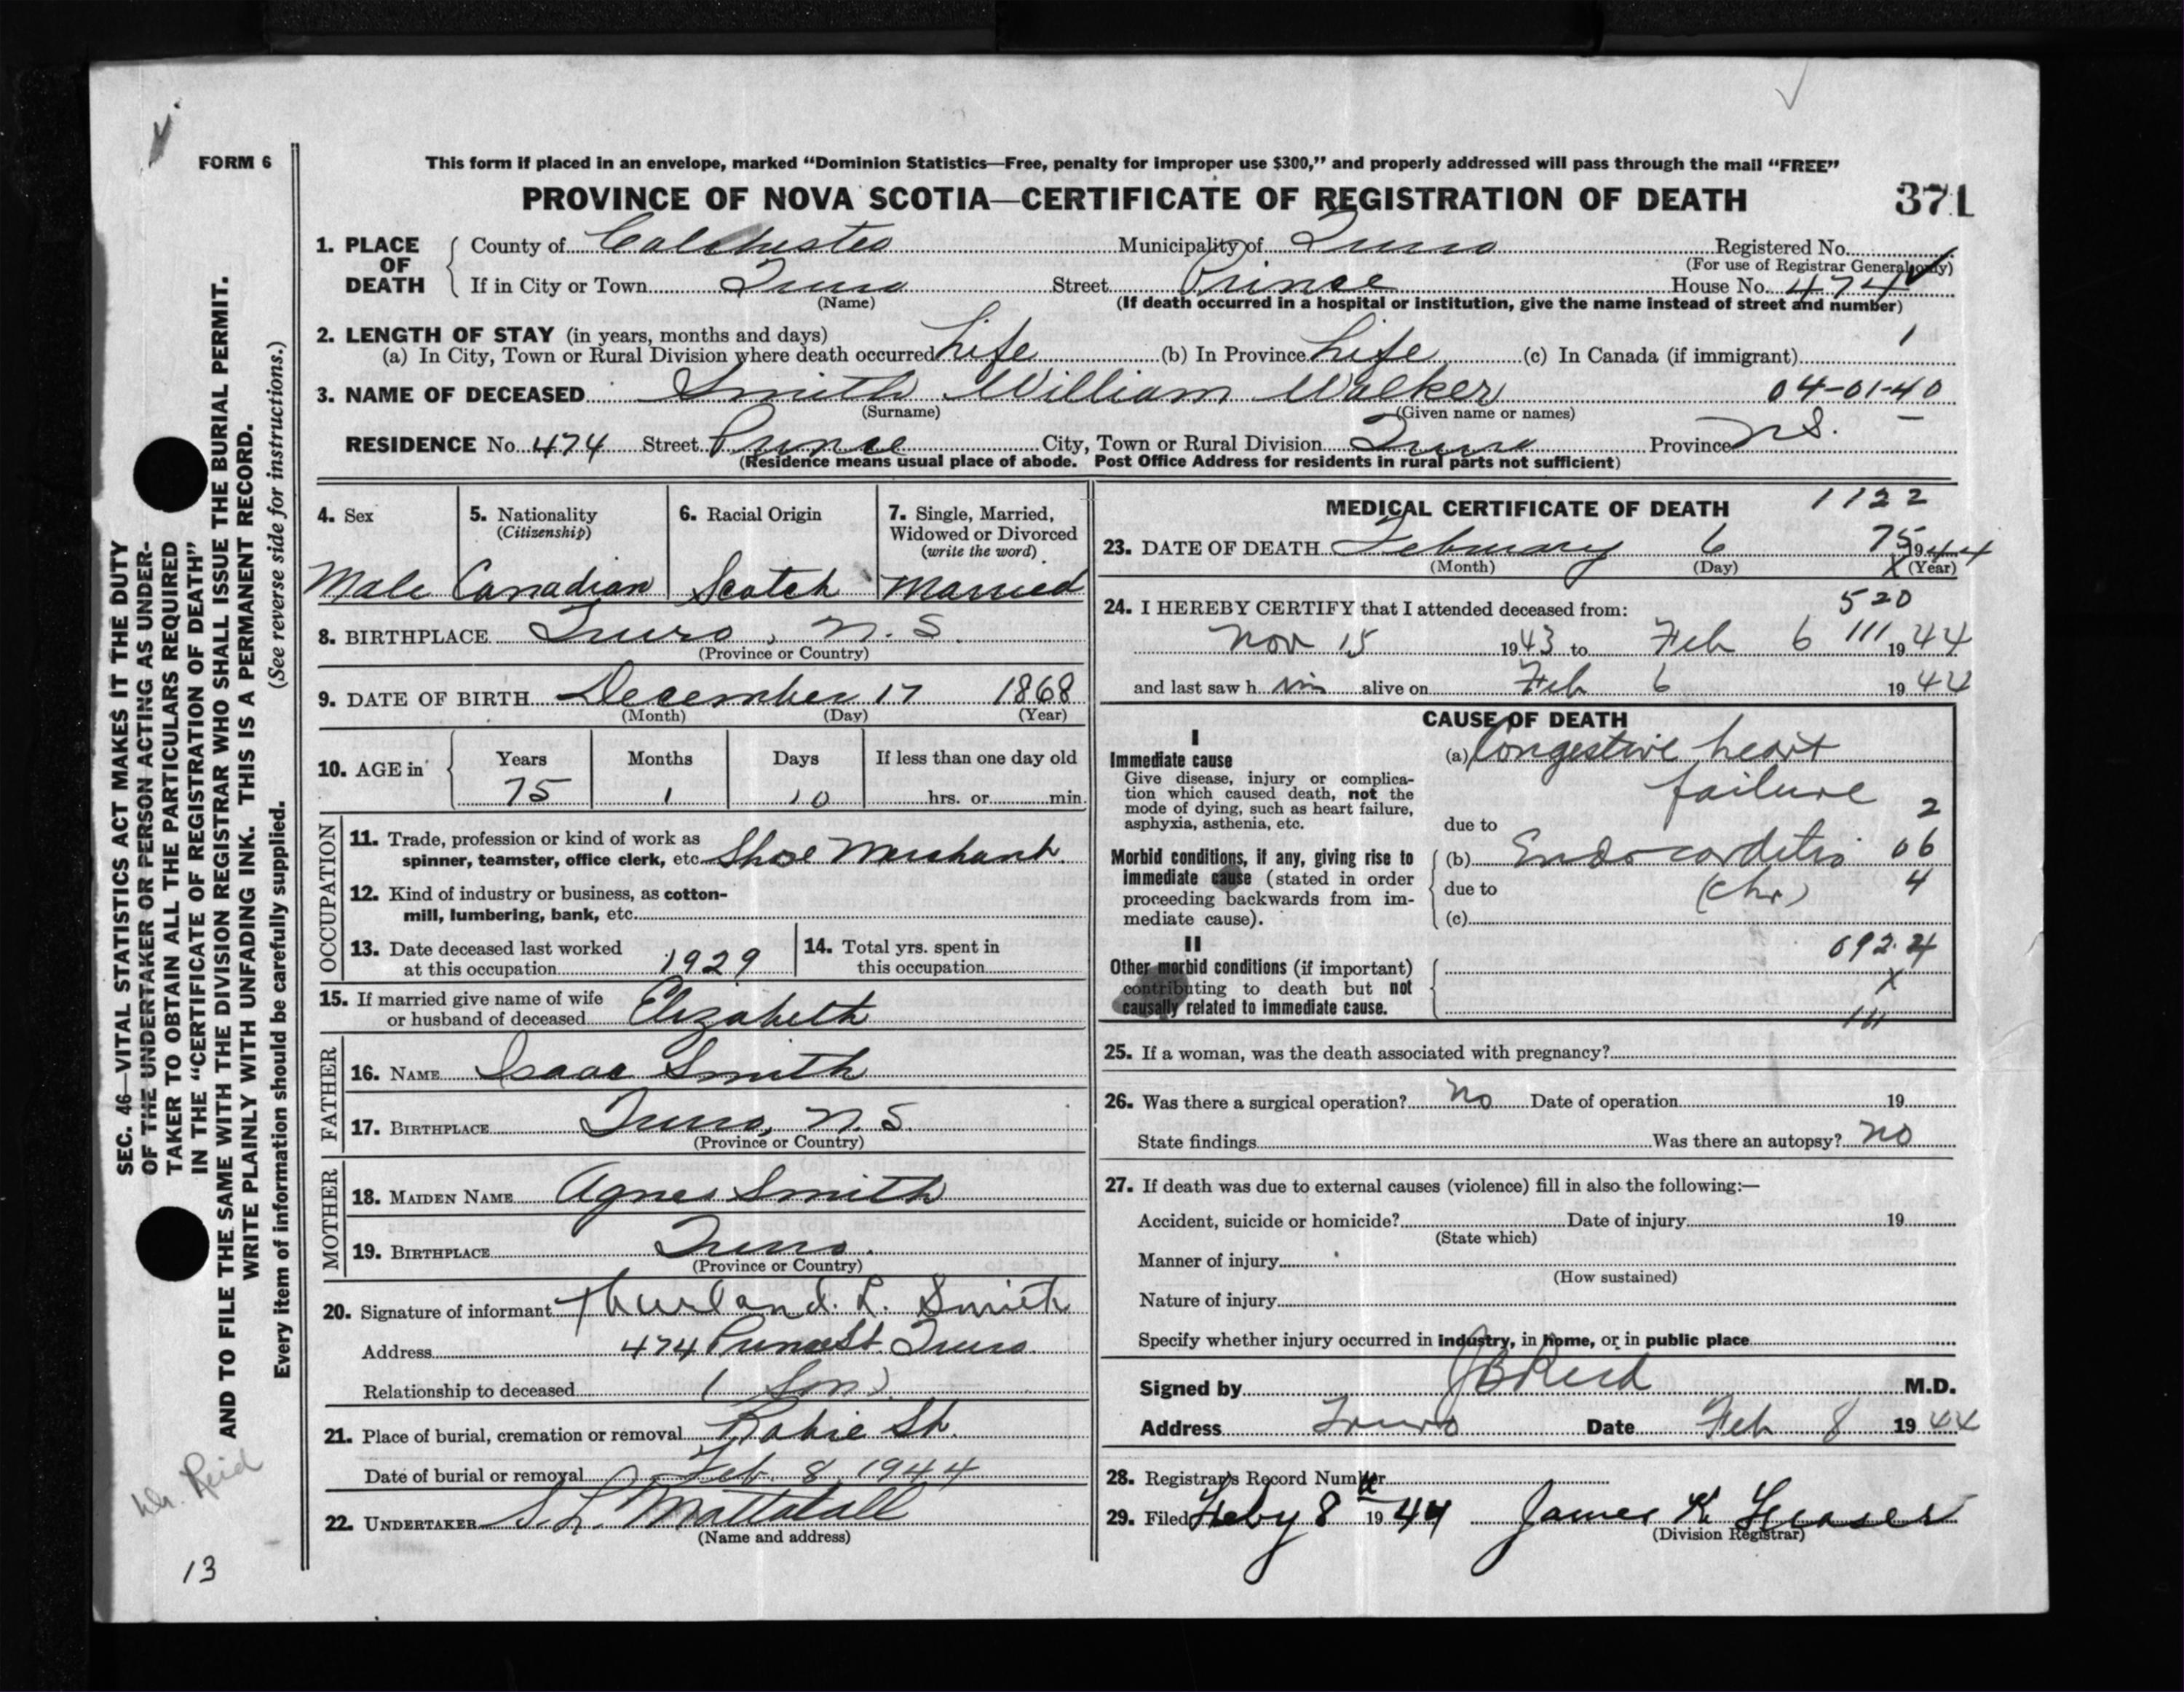 FORM 6
This form if placed in an envelope, marked “Dominion Statistics—Free, penalty for improper use $300,” and properly addressed will pass through the mail “FREE”
PROVINCE OF NOVA SCOTIA—CERTIFICATE OF REGISTRATION OF DEATH
371
1. PLACE OF DEATH
County of Colchester Municipality of Truro Registered No.
(For use of Registrar General only)
If in City or Town Truro Street Prince House No. 474
(Name) (If death occurred in a hospital or institution, give the name instead of street and number)
2. LENGTH OF STAY (in years, months and days)
(a) In City, Town or Rural Division where death occurred Life (b) In Province Life (c) In Canada (if immigrant)
3. NAME OF DECEASED Smith William Walker 04-01-40
(Surname) (Given name or names)
RESIDENCE No. 474 Street Prince City, Town or Rural Division Truro Province N.S.
(Residence means usual place of abode. Post Office Address for residents in rural parts not sufficient)
4. Sex
Male
5. Nationality
(Citizenship)
Canadian
6. Racial Origin
Scotch
7. Single, Married,
Widowed or Divorced
(write the word)
Married
8. BIRTHPLACE Truro, N.S.
(Province or Country)
9. DATE OF BIRTH December 17 1868
(Month) (Day) (Year)
10. AGE in Years Months Days If less than one day old
75 1 10 hrs. or min.
OCCUPATION
11. Trade, profession or kind of work as
spinner, teamster, office clerk, etc. Shoe Merchant
12. Kind of industry or business, as cotton-
mill, lumbering, bank, etc.
13. Date deceased last worked
at this occupation 1929
14. Total yrs. spent in
this occupation
15. If married give name of wife
or husband of deceased Elizabeth
FATHER
16. NAME Isaac Smith
17. BIRTHPLACE Truro, N.S.
(Province or Country)
MOTHER
18. MAIDEN NAME Agnes Smith
19. BIRTHPLACE Truro.
(Province or Country)
20. Signature of informant Thurland. L. Smith
Address 474 Prince St. Truro
Relationship to deceased (Son)
21. Place of burial, cremation or removal Robie St.
Date of burial or removal Feb. 8, 1944
22. UNDERTAKER S. L. Mattatall
(Name and address)
MEDICAL CERTIFICATE OF DEATH
1122
23. DATE OF DEATH February 6 75 1944
(Month) (Day) X (Year)
24. I HEREBY CERTIFY that I attended deceased from: 520
Nov 15 1943 to Feb 6 111 1944
and last saw him alive on Feb 6 1944
CAUSE OF DEATH
I
Immediate cause
Give disease, injury or complica-
tion which caused death, not the
mode of dying, such as heart failure,
asphyxia, asthenia, etc.
(a) Congestive heart
failure
due to 2
Morbid conditions, if any, giving rise to
immediate cause (stated in order
proceeding backwards from im-
mediate cause).
(b) Endocarditis 06
due to (chr) 4
(c)
II
Other morbid conditions (if important)
contributing to death but not
causally related to immediate cause.
092.4
X
111
25. If a woman, was the death associated with pregnancy?
26. Was there a surgical operation? No Date of operation 19
State findings Was there an autopsy? No
27. If death was due to external causes (violence) fill in also the following:—
Accident, suicide or homicide? Date of injury 19
(State which)
Manner of injury
(How sustained)
Nature of injury
Specify whether injury occurred in industry, in home, or in public place
Signed by J B Reid M.D.
Address Truro Date Feb 8 1944
28. Registrar's Record Number
29. Filed Feby 8 1944 James K. Fraser
(Division Registrar)
SEC. 46—VITAL STATISTICS ACT MAKES IT THE DUTY
OF THE UNDERTAKER OR PERSON ACTING AS UNDER-
TAKER TO OBTAIN ALL THE PARTICULARS REQUIRED
IN THE “CERTIFICATE OF REGISTRATION OF DEATH”
AND TO FILE THE SAME WITH THE DIVISION REGISTRAR WHO SHALL ISSUE THE BURIAL PERMIT.
WRITE PLAINLY WITH UNFADING INK. THIS IS A PERMANENT RECORD.
Every item of information should be carefully supplied. (See reverse side for instructions.)
Dr. Reid
13